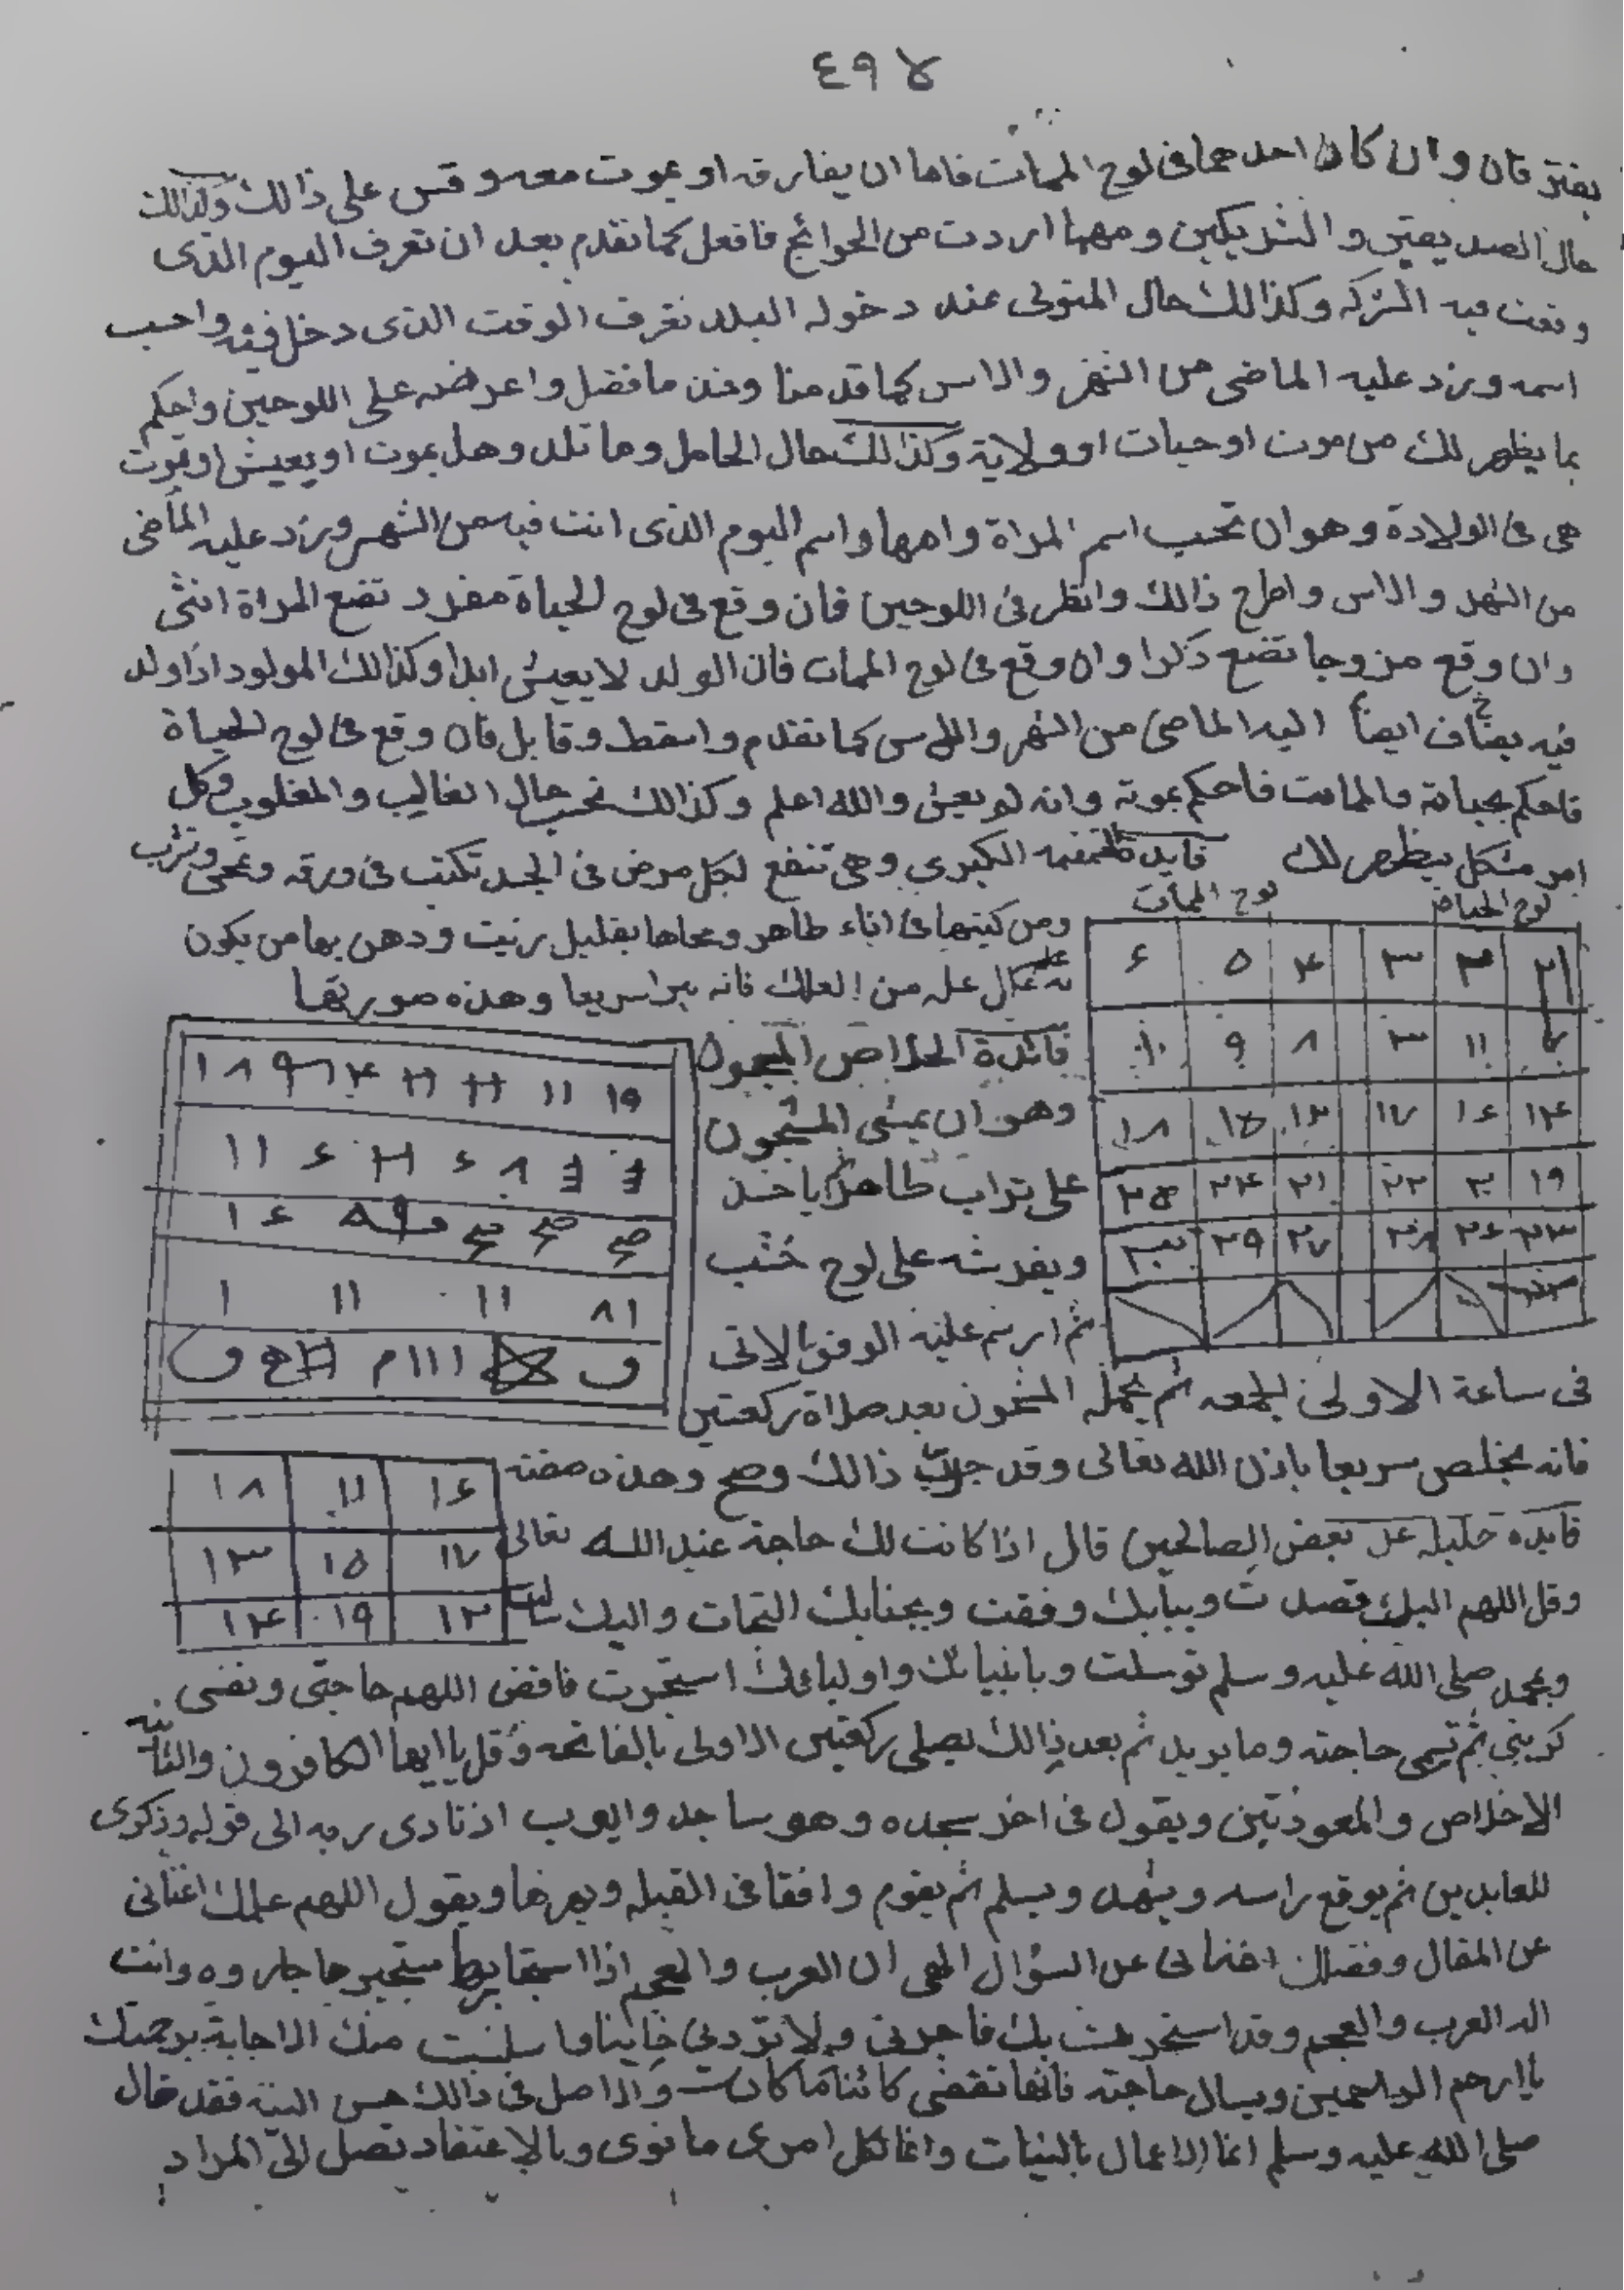 ٤٩٧
يفترقان وان كان احدهما فى لوح الممات فاما ان يفارقه او يموت معه وقس على ذالك وكذالك
حال الصديقين والشريكين ومهما اردت من الحوائج فافعل كما تقدم بعد ان تعرف اليوم الذى
وقعت فيه الشركه وكذالك حال المتولى عند دخوله البلد تعرف الوقت الذى دخل فيه واحسب
اسمه وزد عليه الماضى من الشهر والاس كما قدمنا وخذ ما فضل واعرضه على اللوحين واحكم
بما يظهر لك من موت او حيات او ولاية وكذالك حال الحامل وما تلد وهل يموت او يعيش او تموت
هى فى الولادة وهو ان تحسب اسم المراة وامها واسم اليوم الذى انت فيه من الشهر وزد عليه الماضى
من الشهر والاس واطرح ذالك وانظر فى اللوحين فان وقع فى لوح الحياة مفرد تضع المراة انثى
وان وقع مزوجا تضع ذكرا وان وقع فى لوح الممات فان الولد لا يعيش ابدا وكذالك المولود اذا ولد
فيه يضاف ايضا اليه الماضى من الشهر والاس كما تقدم واسقط وقابل فان وقع فى لوح الحياة
فاحكم بحياته والممات فاحكم بموته وانه لو يعيش والله اعلم وكذالك تحسب حال الغاليب والمغلوب وكل
امر مشكل يظهر لك فايدة الكبرى وهى تنفع لكل مرض فى الجسد تكتب فى ورقه وتمحى وتشرب
لوح الحياة لوح الممات
ومن كتبها فى اناء طاهر ومحاها بقليل زيت ودهن بها من يكون
به علة من العلل فانه يبرا سريعا وهذه صورتها
٤ ٥ ٦
٨ ٩ ١٠
١٤ ١٦ ١٧ ١٣ ١٥ ١٨
١٩ ٢ ٢٢ ٢١ ٢٤ ٢٥
٢٣ ٢٦ ٢٨ ٢٧ ٢٩
فائدة الخلاص المسجون
وهو ان يمشى المسجون
على تراب طاهر ياخذ
ويفرشه على لوح خشب
ثم ارسم عليه الوفق الاتى
١٩ ١١
٨١ ١١ ١١ ١
فى ساعة الاولى الجمعه ثم يحمله المسجون بعد صلاة ركعتين
فانه يخلص سريعا باذن الله تعالى وقد جرب ذالك وصح وهذه صفته
١٦ ١١ ١٨
١٧ ١٥ ١٣
١٢ ١٩ ١٤
فايده جليله عن بعض الصالحين قال اذا كانت لك حاجة عند الله تعالى
وقل اللهم اليك قصدت وببابك وقفت وبجنابك التجات واليك سالت
وبمحمد صلى الله عليه وسلم توسلت وبانبيائك واوليائك استجرت فاقض اللهم حاجتى ونفس
كربتى ثم تسمى حاجته وما يريد ثم بعد ذالك يصلى ركعتين الاولى بالفاتحه وقل يا ايها الكافرون والثانيه
الاخلاص والمعوذتين ويقول فى اخر سجده وهو ساجد وايوب اذ نادى ربه الى قوله وذكرى
للعابدين ثم يرفع راسه ويشهد ويسلم ثم يقوم واقفا فى القبله ويقول اللهم علمك اغنانى
عن المقال وفضلك اغنانى عن السؤال الهى ان العرب والعجم اذا استجار بها مستجير اجاروه وانت
اله العرب والعجم وقد استجرت بك فاجرنى ولا تردنى خايبا وما سلنت منك الاجابة برحمتك
يا ارحم الراحمين ويسال حاجته فانها تقضى كائنا ما كانت والاصل فى ذالك حسن النيه فقد قال
صلى الله عليه وسلم انما الاعمال بالنيات وانما لكل امرى ما نوى وبالاعتقاد تصل الى المراد